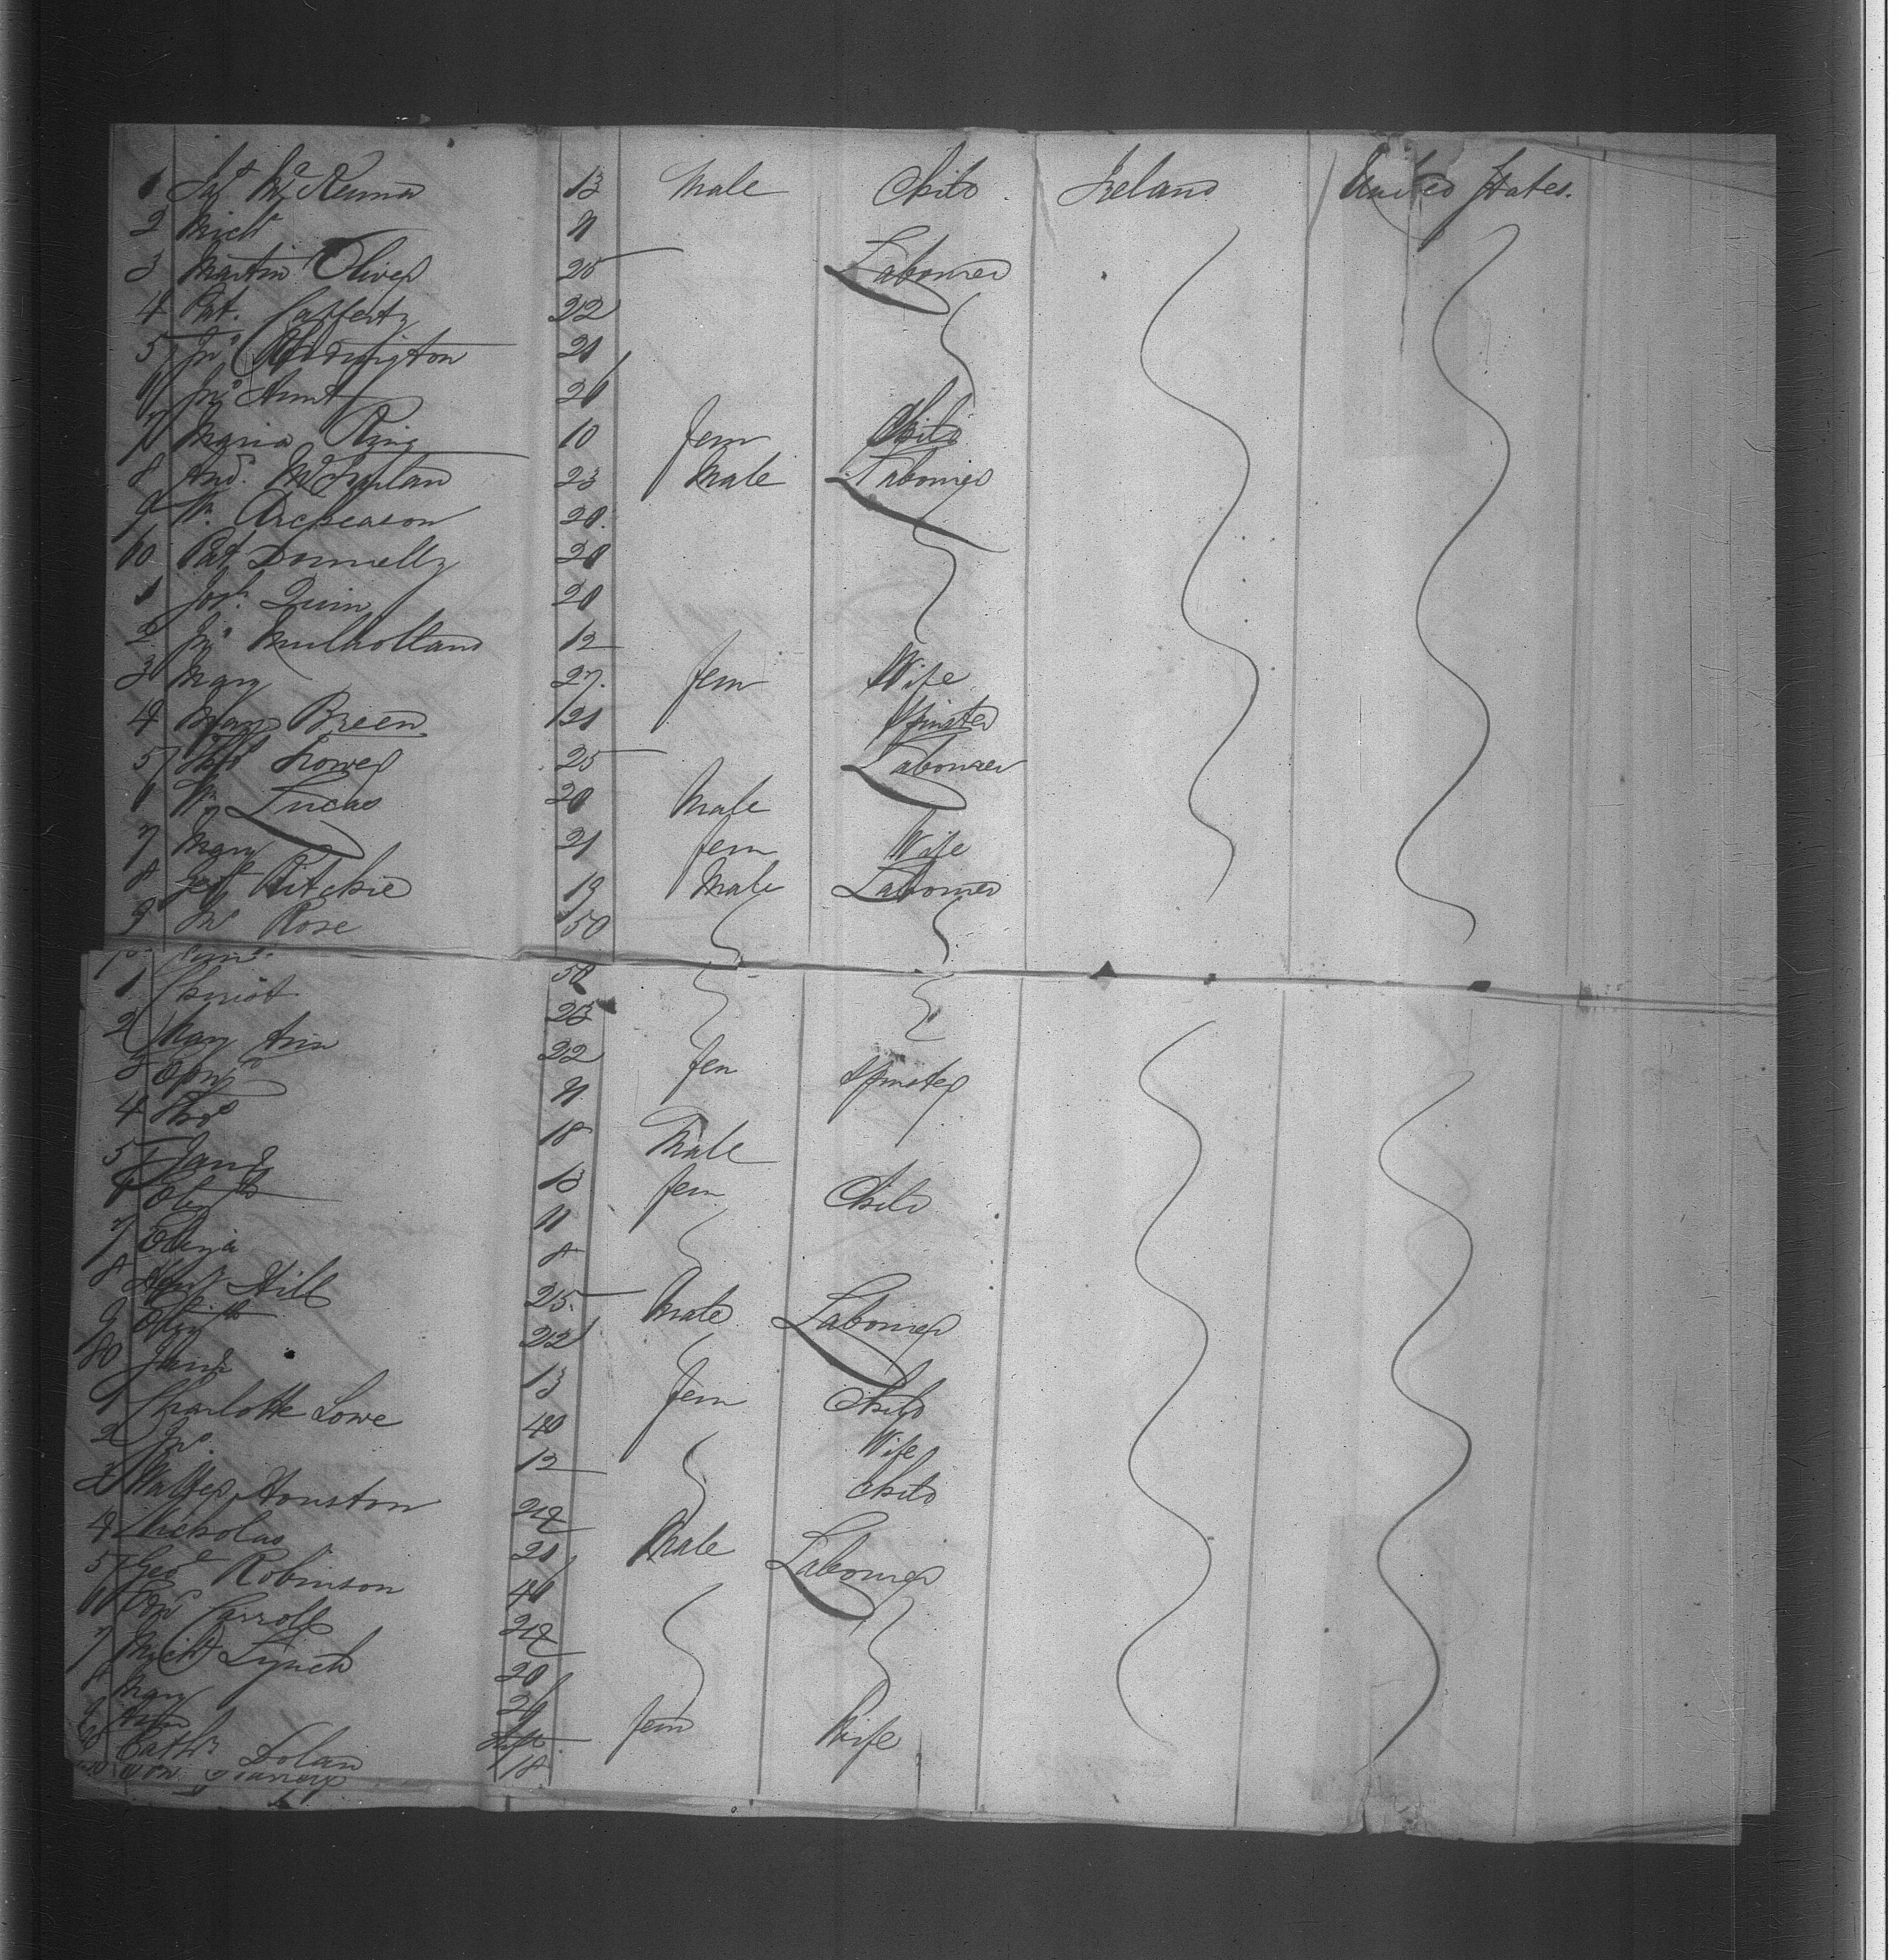 1 Jas Mc Kenna 13 Male Child Ireland United States.
2 Mich 11
3 Martin Oliver 25 Labourer
4 Pat. Cafferty 22
5 Jno 21
6 Jno Hunt 26
7 Maria King 10 Fem Child
8 And. 23 Male Labourer
9 Wm 20.
10 Pat Donnelly 20
1 Josh. Quin 20
2 Jno Mulholland 12
3 Mary 27. Fem Wife
4 Mary Breen 21 Spinster
5 Thos Lower 25 Labourer
6 Wm Lucas 20 Male
7 Mary 21 Fem Wife
8 Ritchie 19 Male Labourer
9 Rose 50
10 50
1 Christ 23
2 Mary Ann 22 Fem Spinster
3 11
4 Thos 18 Male
5 Jane 13 Fem Child
6 Elizth 11
7 Eliza 8
8 Hill 25. Male Labourer
9 Elizth 22
10 Jane 13 Fem Child
1 Charlotte Lowe 40 Wife
2 Jno. 12 Child
3 Walter Houston 24
4 Nicholas 21 Male Labourer
5 Geo Robinson 40
6 Carroll 24
7 Mich Lynch 20
8 Mary 26 Fem Wife
9 Ann Inft
10 Cathr Dolan 18